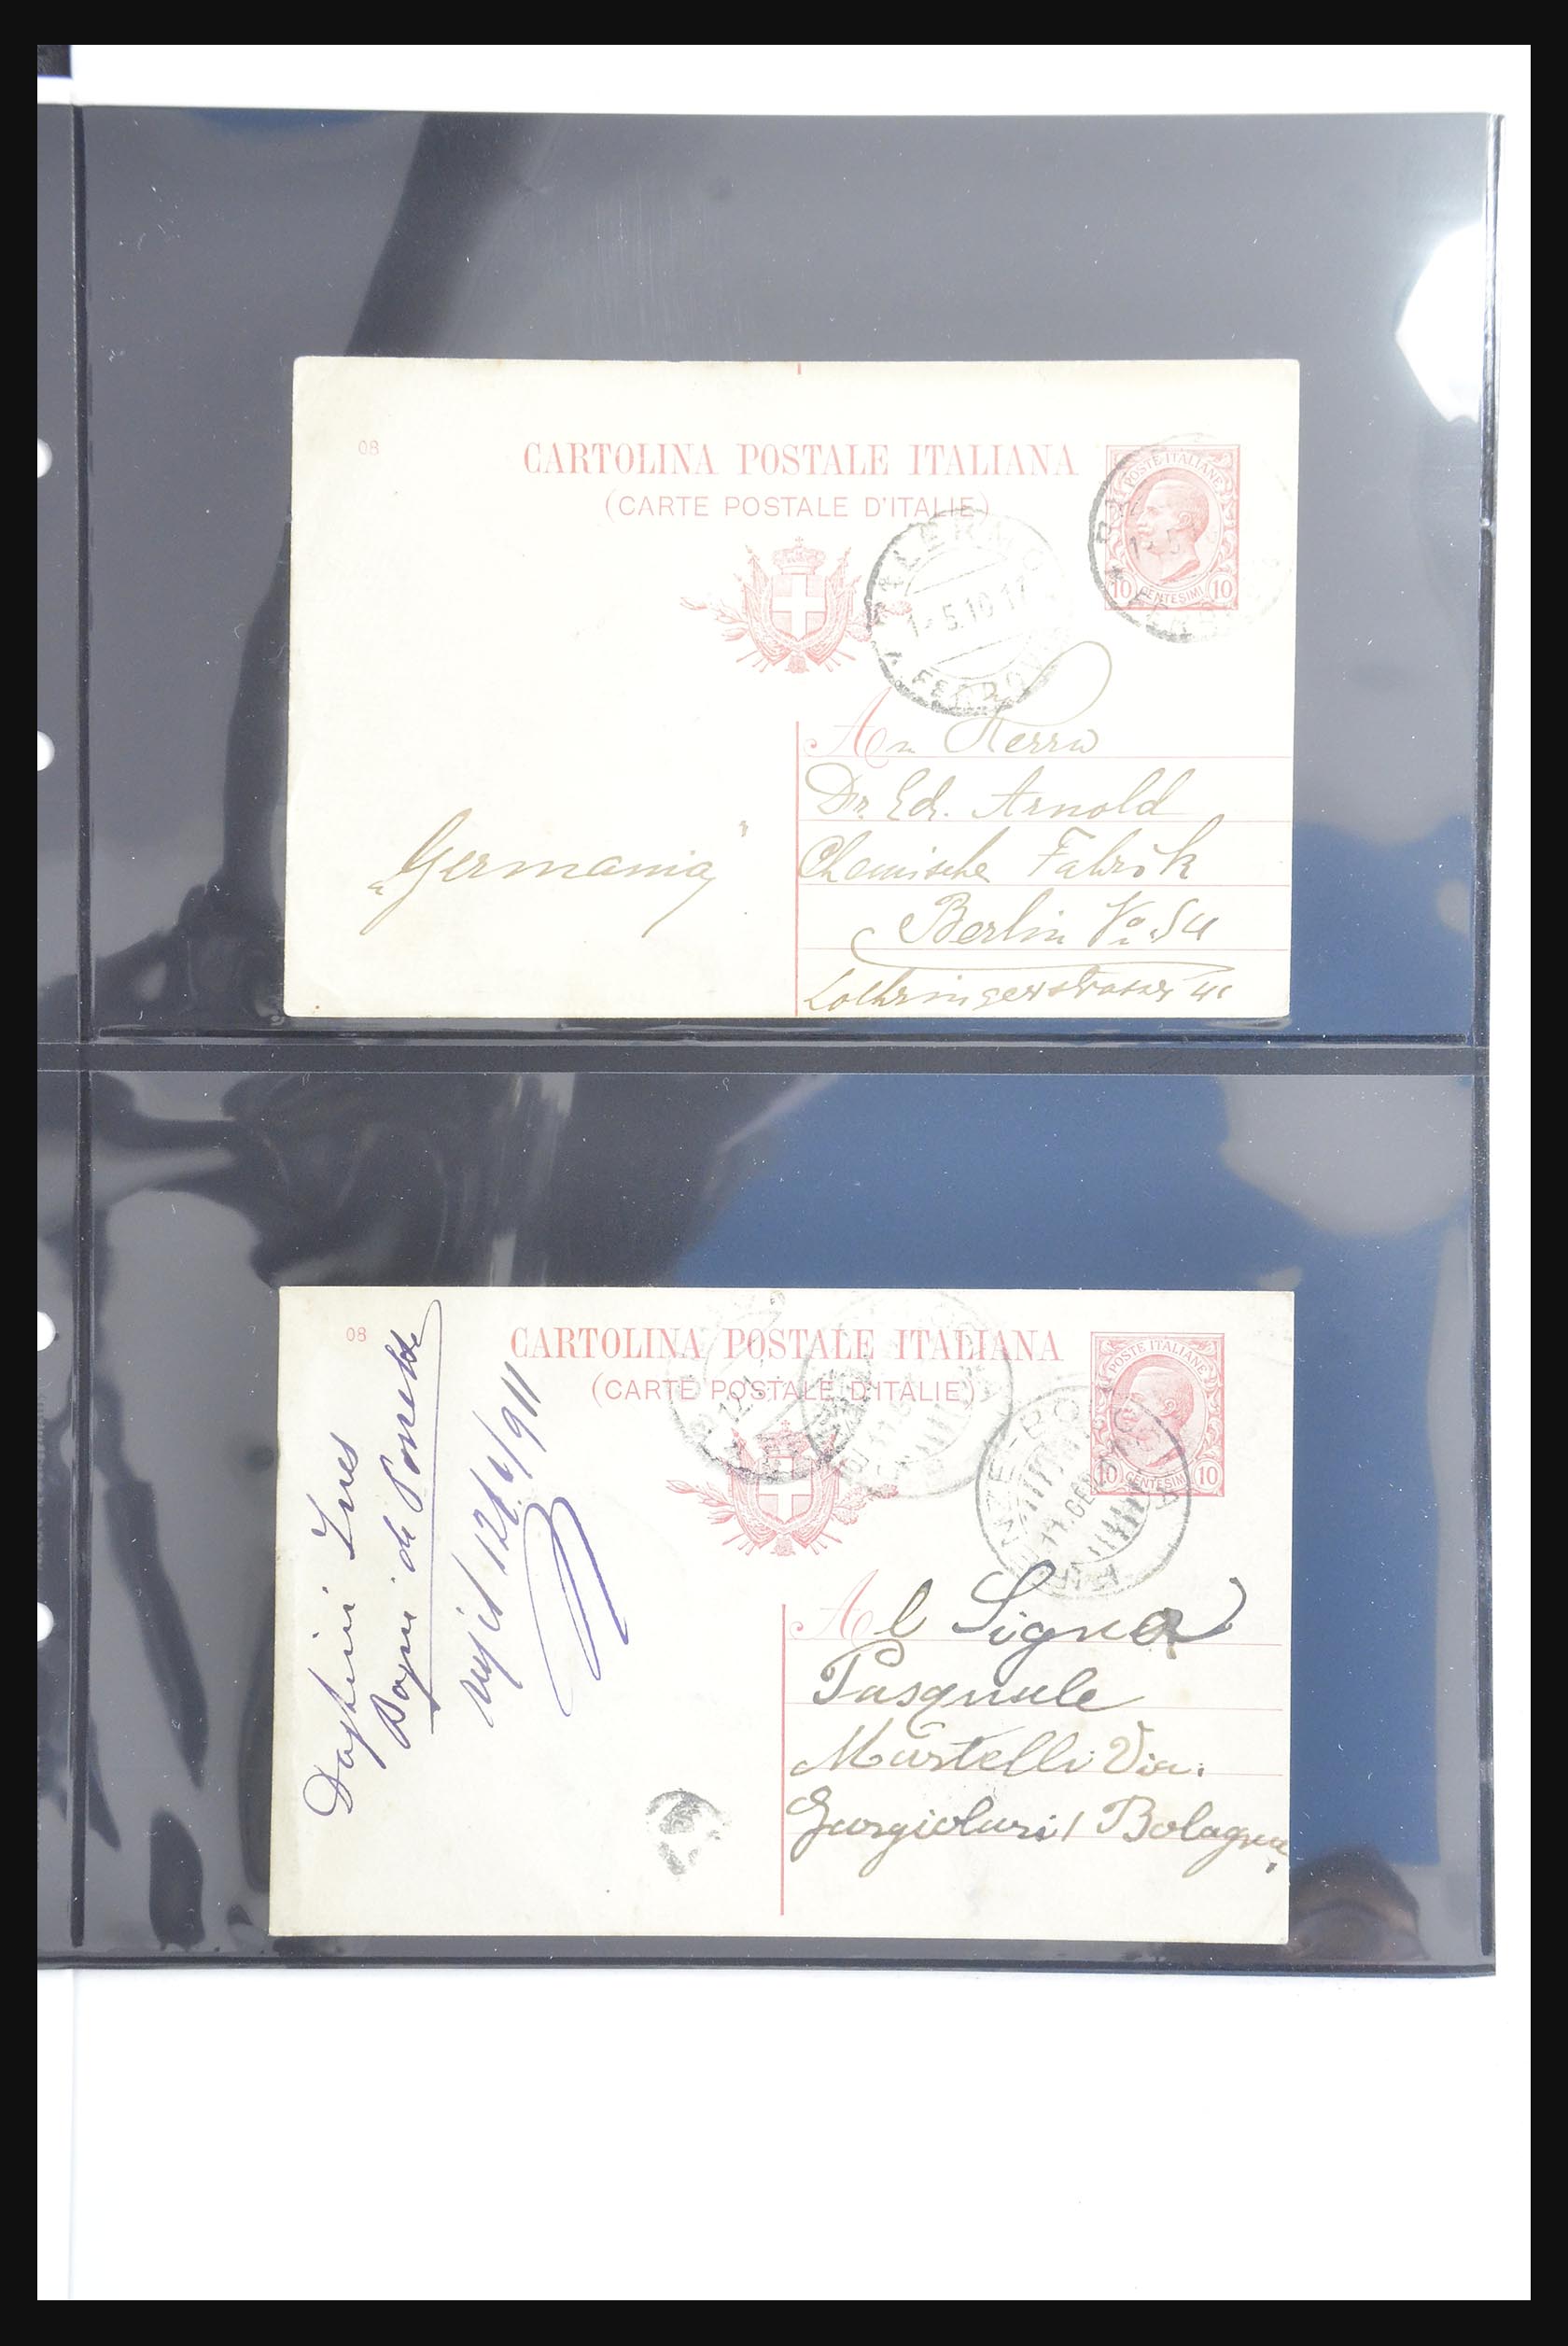 08
CARTOLINA POSTALE ITALIANA
(CARTE POSTALE D'ITALIE)
POSTE ITALIANE
10 CENTESIMI 10
PALERMO
1-5.10.17
FERROVIA
An Herrn
Dr. Ed. Arnold
Chemische Fabrik
Berlin No 54
Lothringerstrasse 41
"Germania"
08
CARTOLINA POSTALE ITALIANA
(CARTE POSTALE D'ITALIE)
POSTE ITALIANE
10 CENTESIMI 10
11.GEN
Al Signor
Pasquale
Martelli Via
Bologna
Ines
Bagni di Porretta